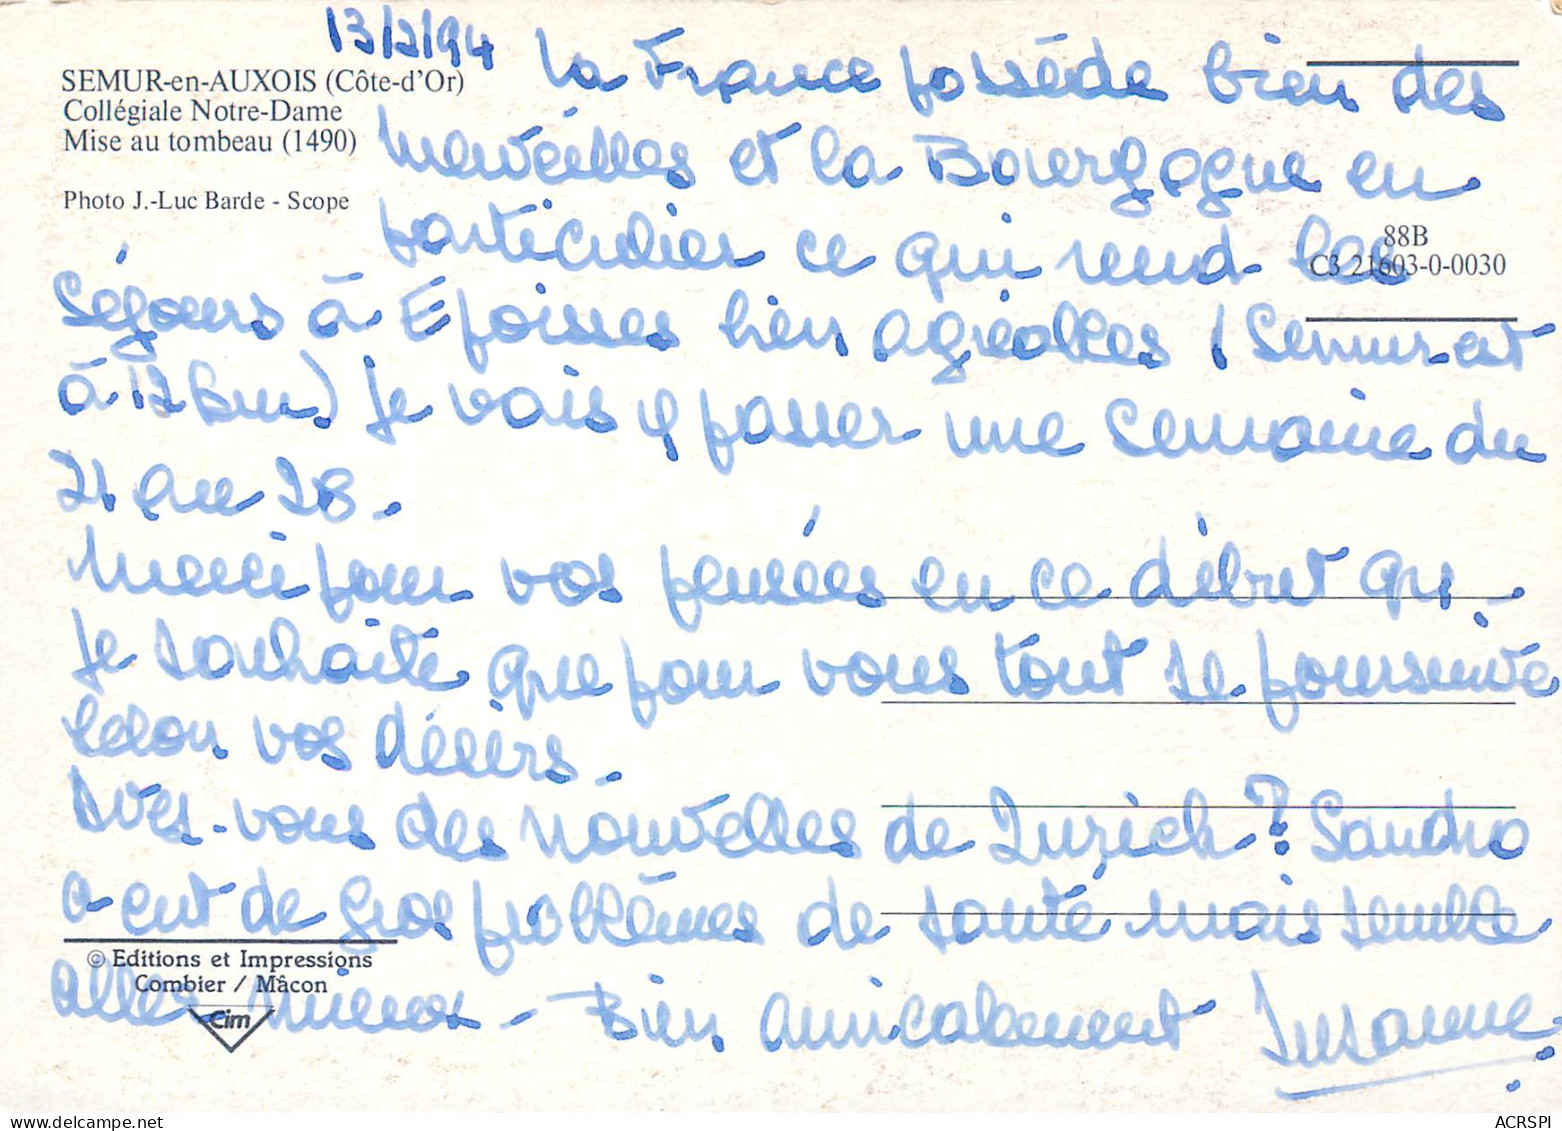 13/2/94
SEMUR-en-AUXOIS (Côte-d'Or)
Collégiale Notre-Dame
Mise au tombeau (1490)
Photo J.-Luc Barde - Scope
88B
C3 21603-0-0030
La France possède bien des
merveilles et la Bourgogne en
particulier ce qui rend les
séjours à Epoisses bien agréables (Semur est
à 12 km) Je vais y passer une semaine du
21 au 28.
Merci pour vos pensées en ce début
Je souhaite que pour vous tout se poursuive
selon vos désirs.
Avez-vous des nouvelles de Zurich? Sandro
a eut de gros problèmes de santé mais semble
aller mieux - Bien amicalement Suzanne
© Editions et Impressions
Combier / Mâcon
Cim
ACRSPI